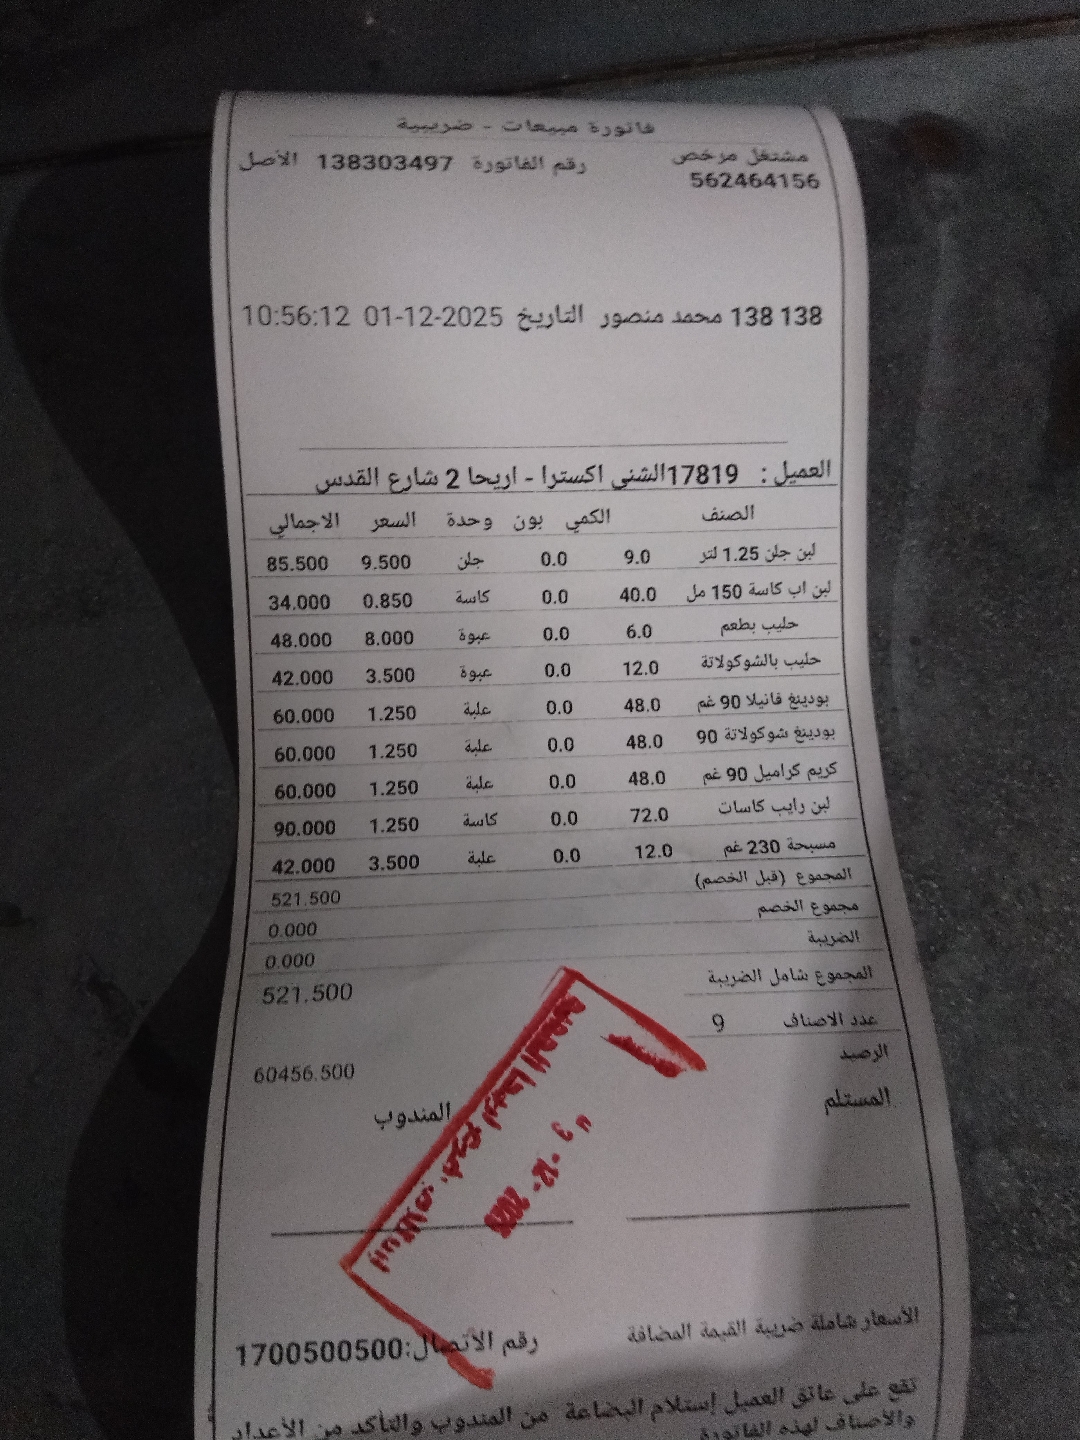 فاتورة مبيعات - ضريبية
مشتغل مرخص رقم الفاتورة 138303497 الأصل
562464156
138 138 محمد منصور التاريخ 01-12-2025 10:56:12
العميل : 17819الشني اكسترا - اريحا 2 شارع القدس
الصنف الكمي بون وحدة السعر الاجمالي
لبن جلن 1.25 لتر 9.0 0.0 جلن 9.500 85.500
لبن اب كاسة 150 مل 40.0 0.0 كاسة 0.850 34.000
حليب بطعم 6.0 0.0 عبوة 8.000 48.000
حليب بالشوكولاتة 12.0 0.0 عبوة 3.500 42.000
بودينغ فانيلا 90 غم 48.0 0.0 علبة 1.250 60.000
بودينغ شوكولاتة 90 48.0 0.0 علبة 1.250 60.000
كريم كراميل 90 غم 48.0 0.0 علبة 1.250 60.000
لبن رايب كاسات 72.0 0.0 كاسة 1.250 90.000
مسبحة 230 غم 12.0 0.0 علبة 3.500 42.000
المجموع (قبل الخصم) 521.500
مجموع الخصم 0.000
الضريبة 0.000
المجموع شامل الضريبة 521.500
عدد الاصناف 9
الرصيد 60456.500
المستلم المندوب
2025
الأسعار شاملة ضريبة القيمة المضافة رقم الأتصال:1700500500
تقع على عاتق العميل إستلام البضاعة من المندوب والتأكد من الأعداد
والأصناف لهذه الفاتورة